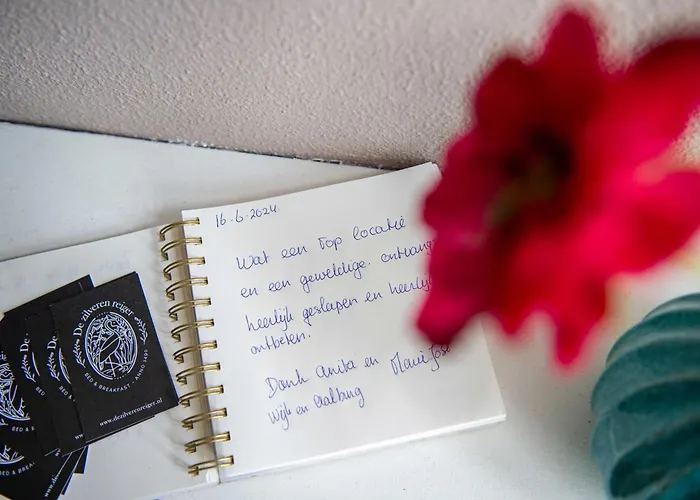 16-6-2024
Wat een top locatie
en een geweldige. ontvangst
heerlijk geslapen en heerlijk
ontbeten.
Dank Anita en
Wijk en Aalburg
De zilveren reiger
BED & BREAKFAST • ANNO 1889
www.dezilverenreiger.nl
BED & BREA
BED
www